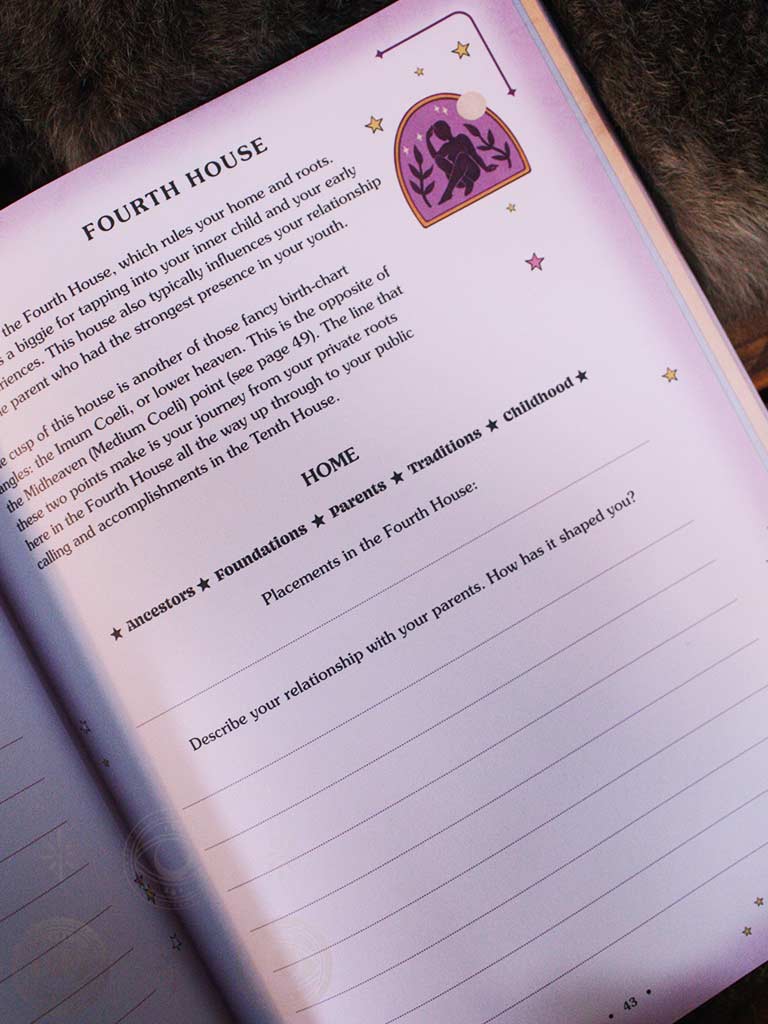 FOURTH HOUSE
the Fourth House, which rules your home and roots.
a biggie for tapping into your inner child and your early
This house also typically influences your relationship
parent who had the strongest presence in your youth.
cusp of this house is another of those fancy birth-chart
angles: the Imum Coeli, or lower heaven. This is the opposite of
the Midheaven (Medium Coeli) point (see page 49). The line that
these two points make is your journey from your private roots
here in the Fourth House all the way up through to your public
calling and accomplishments in the Tenth House.
HOME
★ Ancestors ★ Foundations ★ Parents ★ Traditions ★ Childhood ★
Placements in the Fourth House:
Describe your relationship with your parents. How has it shaped you?
• 43 •